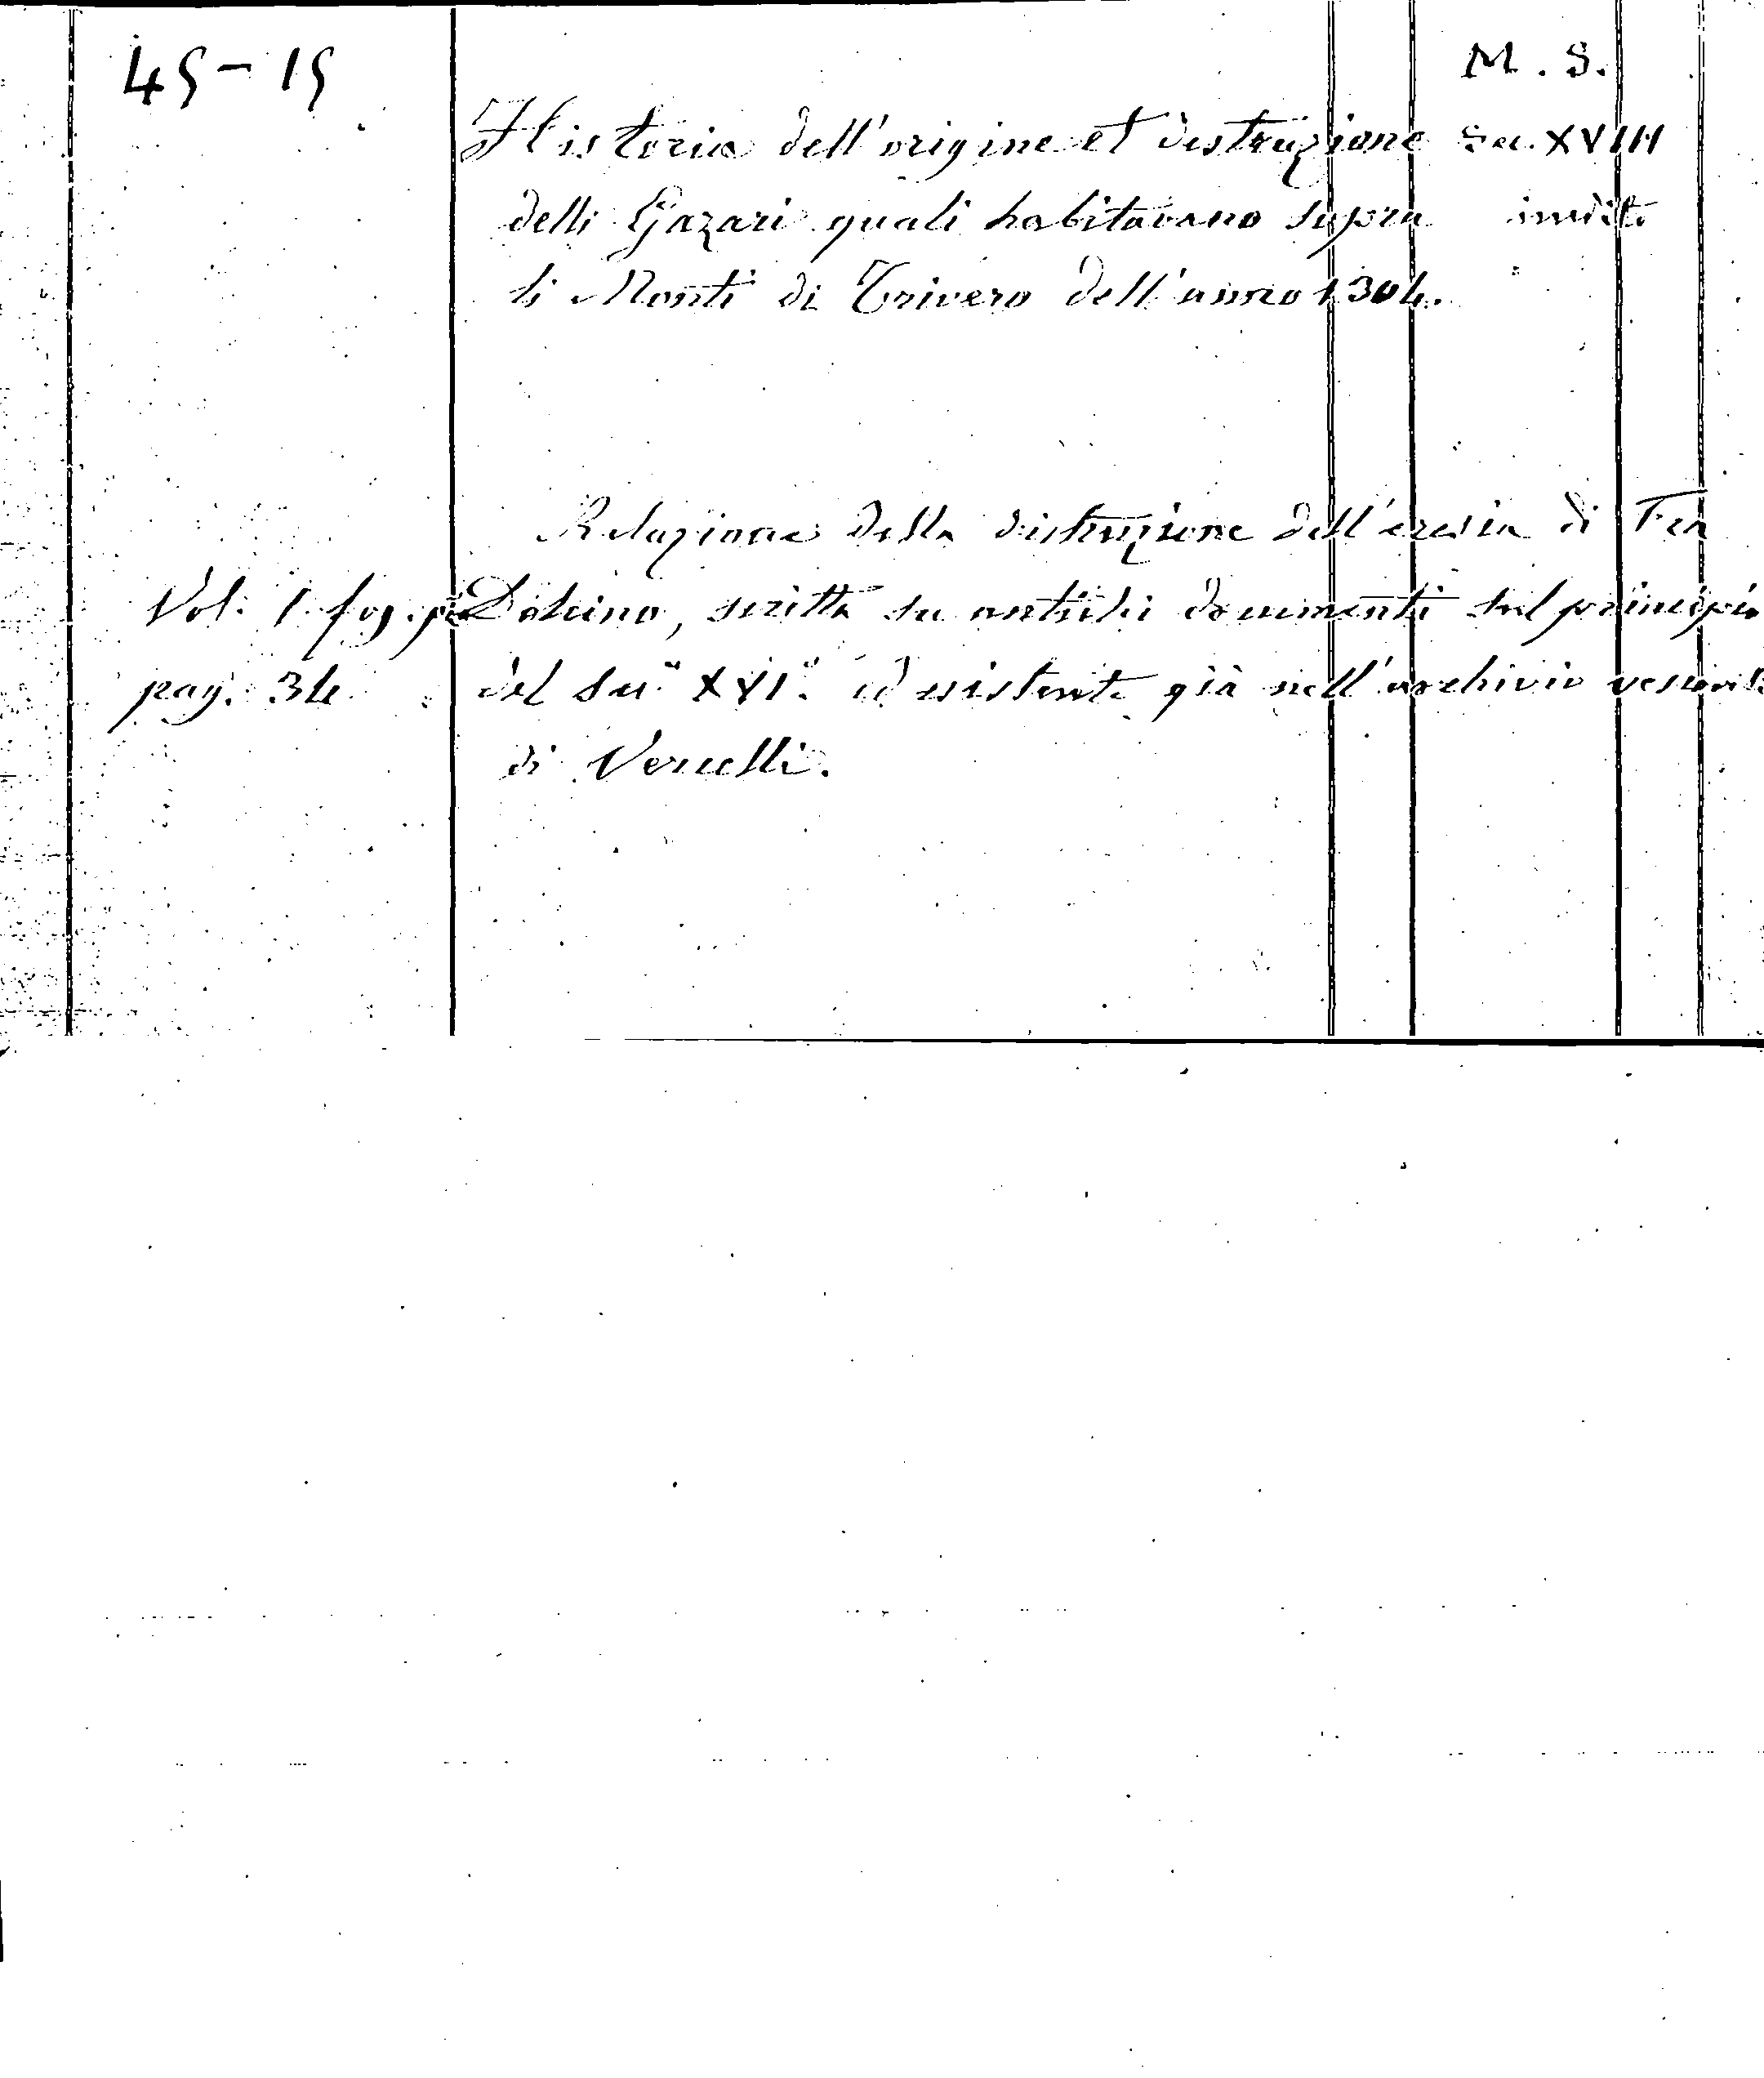 45-15
M. S.
Historia dell'origine et destruzione Sec. XVIII
delli Gazari quali habitavano supra inedito
li Monti di Trivero dell'anno 1304.
Relazione della distruzione dell'eresia di Fra
Vol: 1 fog. pic Dolcino, scritta su antichi documenti sul principio
pag. 34 del sec.º XVI.º ed esistente già nell'archivio vescovile
di Vercelli.